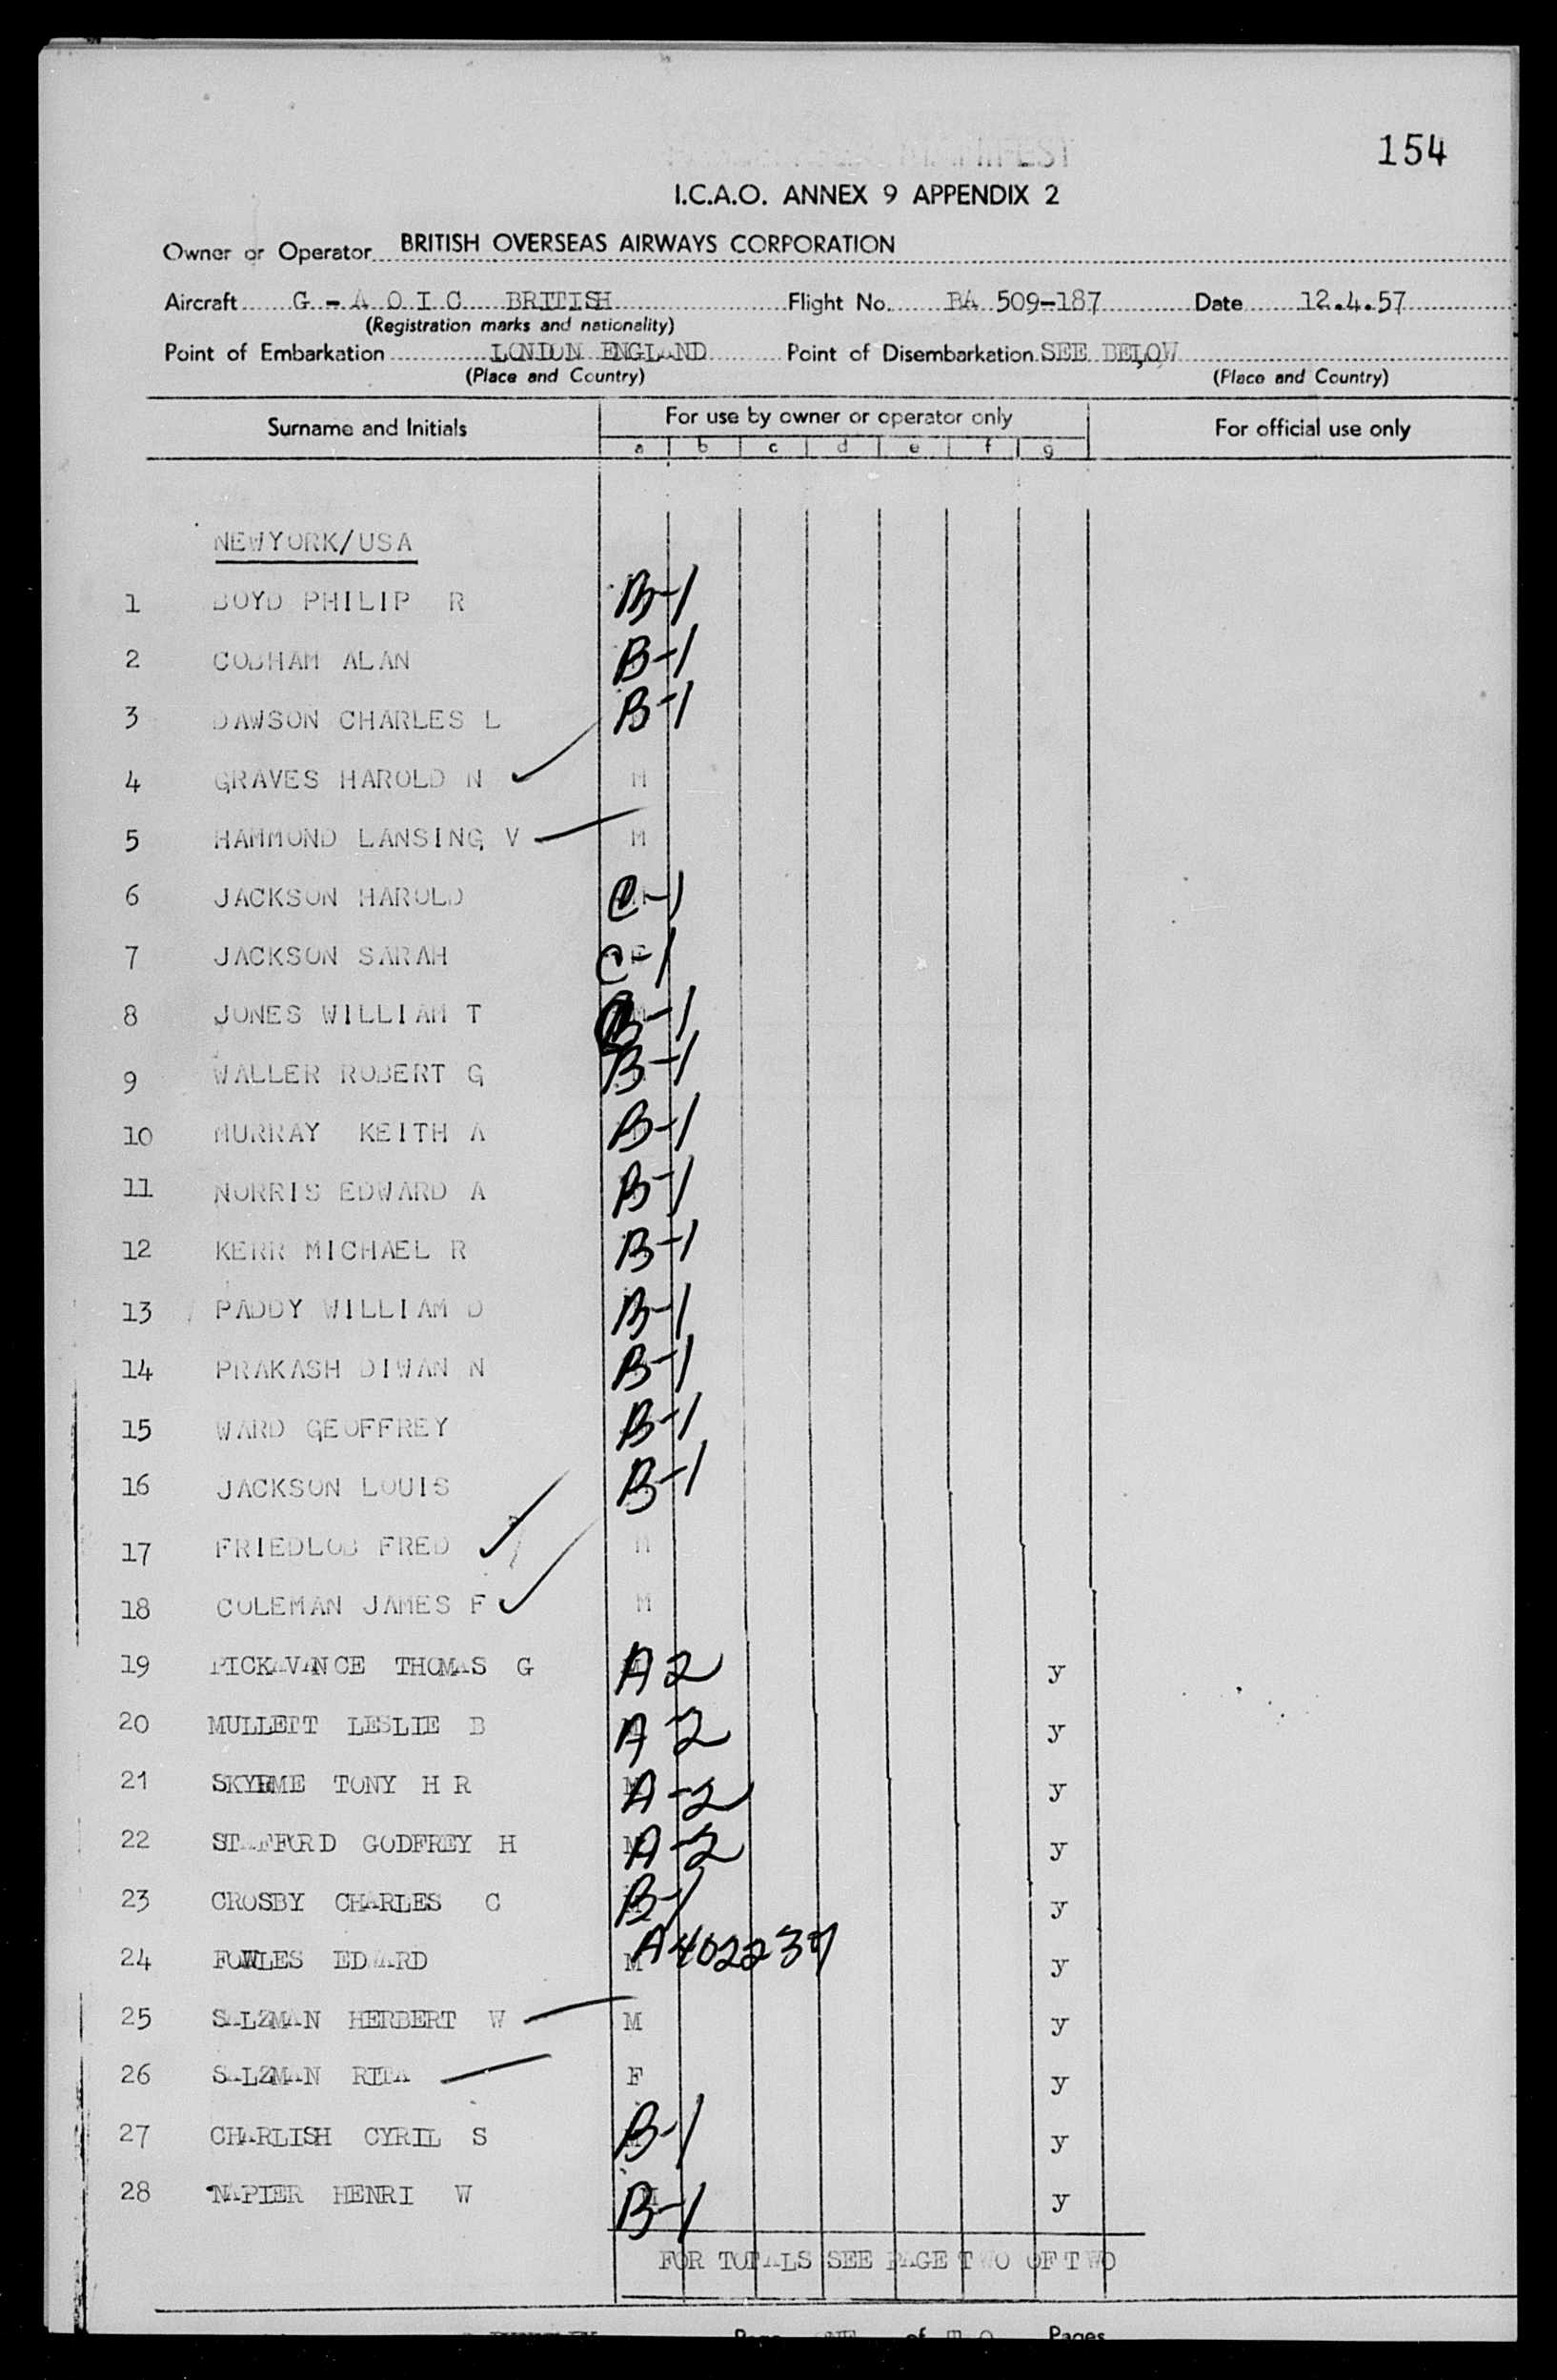 154
MANIFEST
I.C.A.O. ANNEX 9 APPENDIX 2
Owner or Operator BRITISH OVERSEAS AIRWAYS CORPORATION
Aircraft G - A O I C BRITISH Flight No. BA 509-187 Date 12.4.57
(Registration marks and nationality)
Point of Embarkation LONDON ENGLAND Point of Disembarkation SEE BELOW
(Place and Country) (Place and Country)
Surname and Initials For use by owner or operator only For official use only
a b c d e f g
NEWYORK/USA
1 BOYD PHILIP R B-1
2 COBHAM ALAN B-1
3 DAWSON CHARLES L B-1
4 GRAVES HAROLD N M
5 HAMMOND LANSING V M
6 JACKSON HAROLD C-1
7 JACKSON SARAH C-1
8 JONES WILLIAM T B-1
9 WALLER ROBERT G B-1
10 MURRAY KEITH A B-1
11 NORRIS EDWARD A B-1
12 KERR MICHAEL R B-1
13 PADDY WILLIAM D B-1
14 PRAKASH DIWAN N B-1
15 WARD GEOFFREY B-1
16 JACKSON LOUIS B-1
17 FRIEDLOB FRED M
18 COLEMAN JAMES F M
19 PICKAVANCE THOMAS G A 2 y
20 MULLETT LESLIE B A-2 y
21 SKYRME TONY H R A-2 y
22 STAFFORD GODFREY H A-2 y
23 CROSBY CHARLES C B-1 y
24 FOWLES EDWARD M A402237 y
25 SALZMAN HERBERT W M y
26 SALZMAN RITA F y
27 CHARLISH CYRIL S B-1 y
28 NAPIER HENRI W B-1 y
FOR TOTALS SEE PAGE TWO OF TWO
Page ONE of Pages